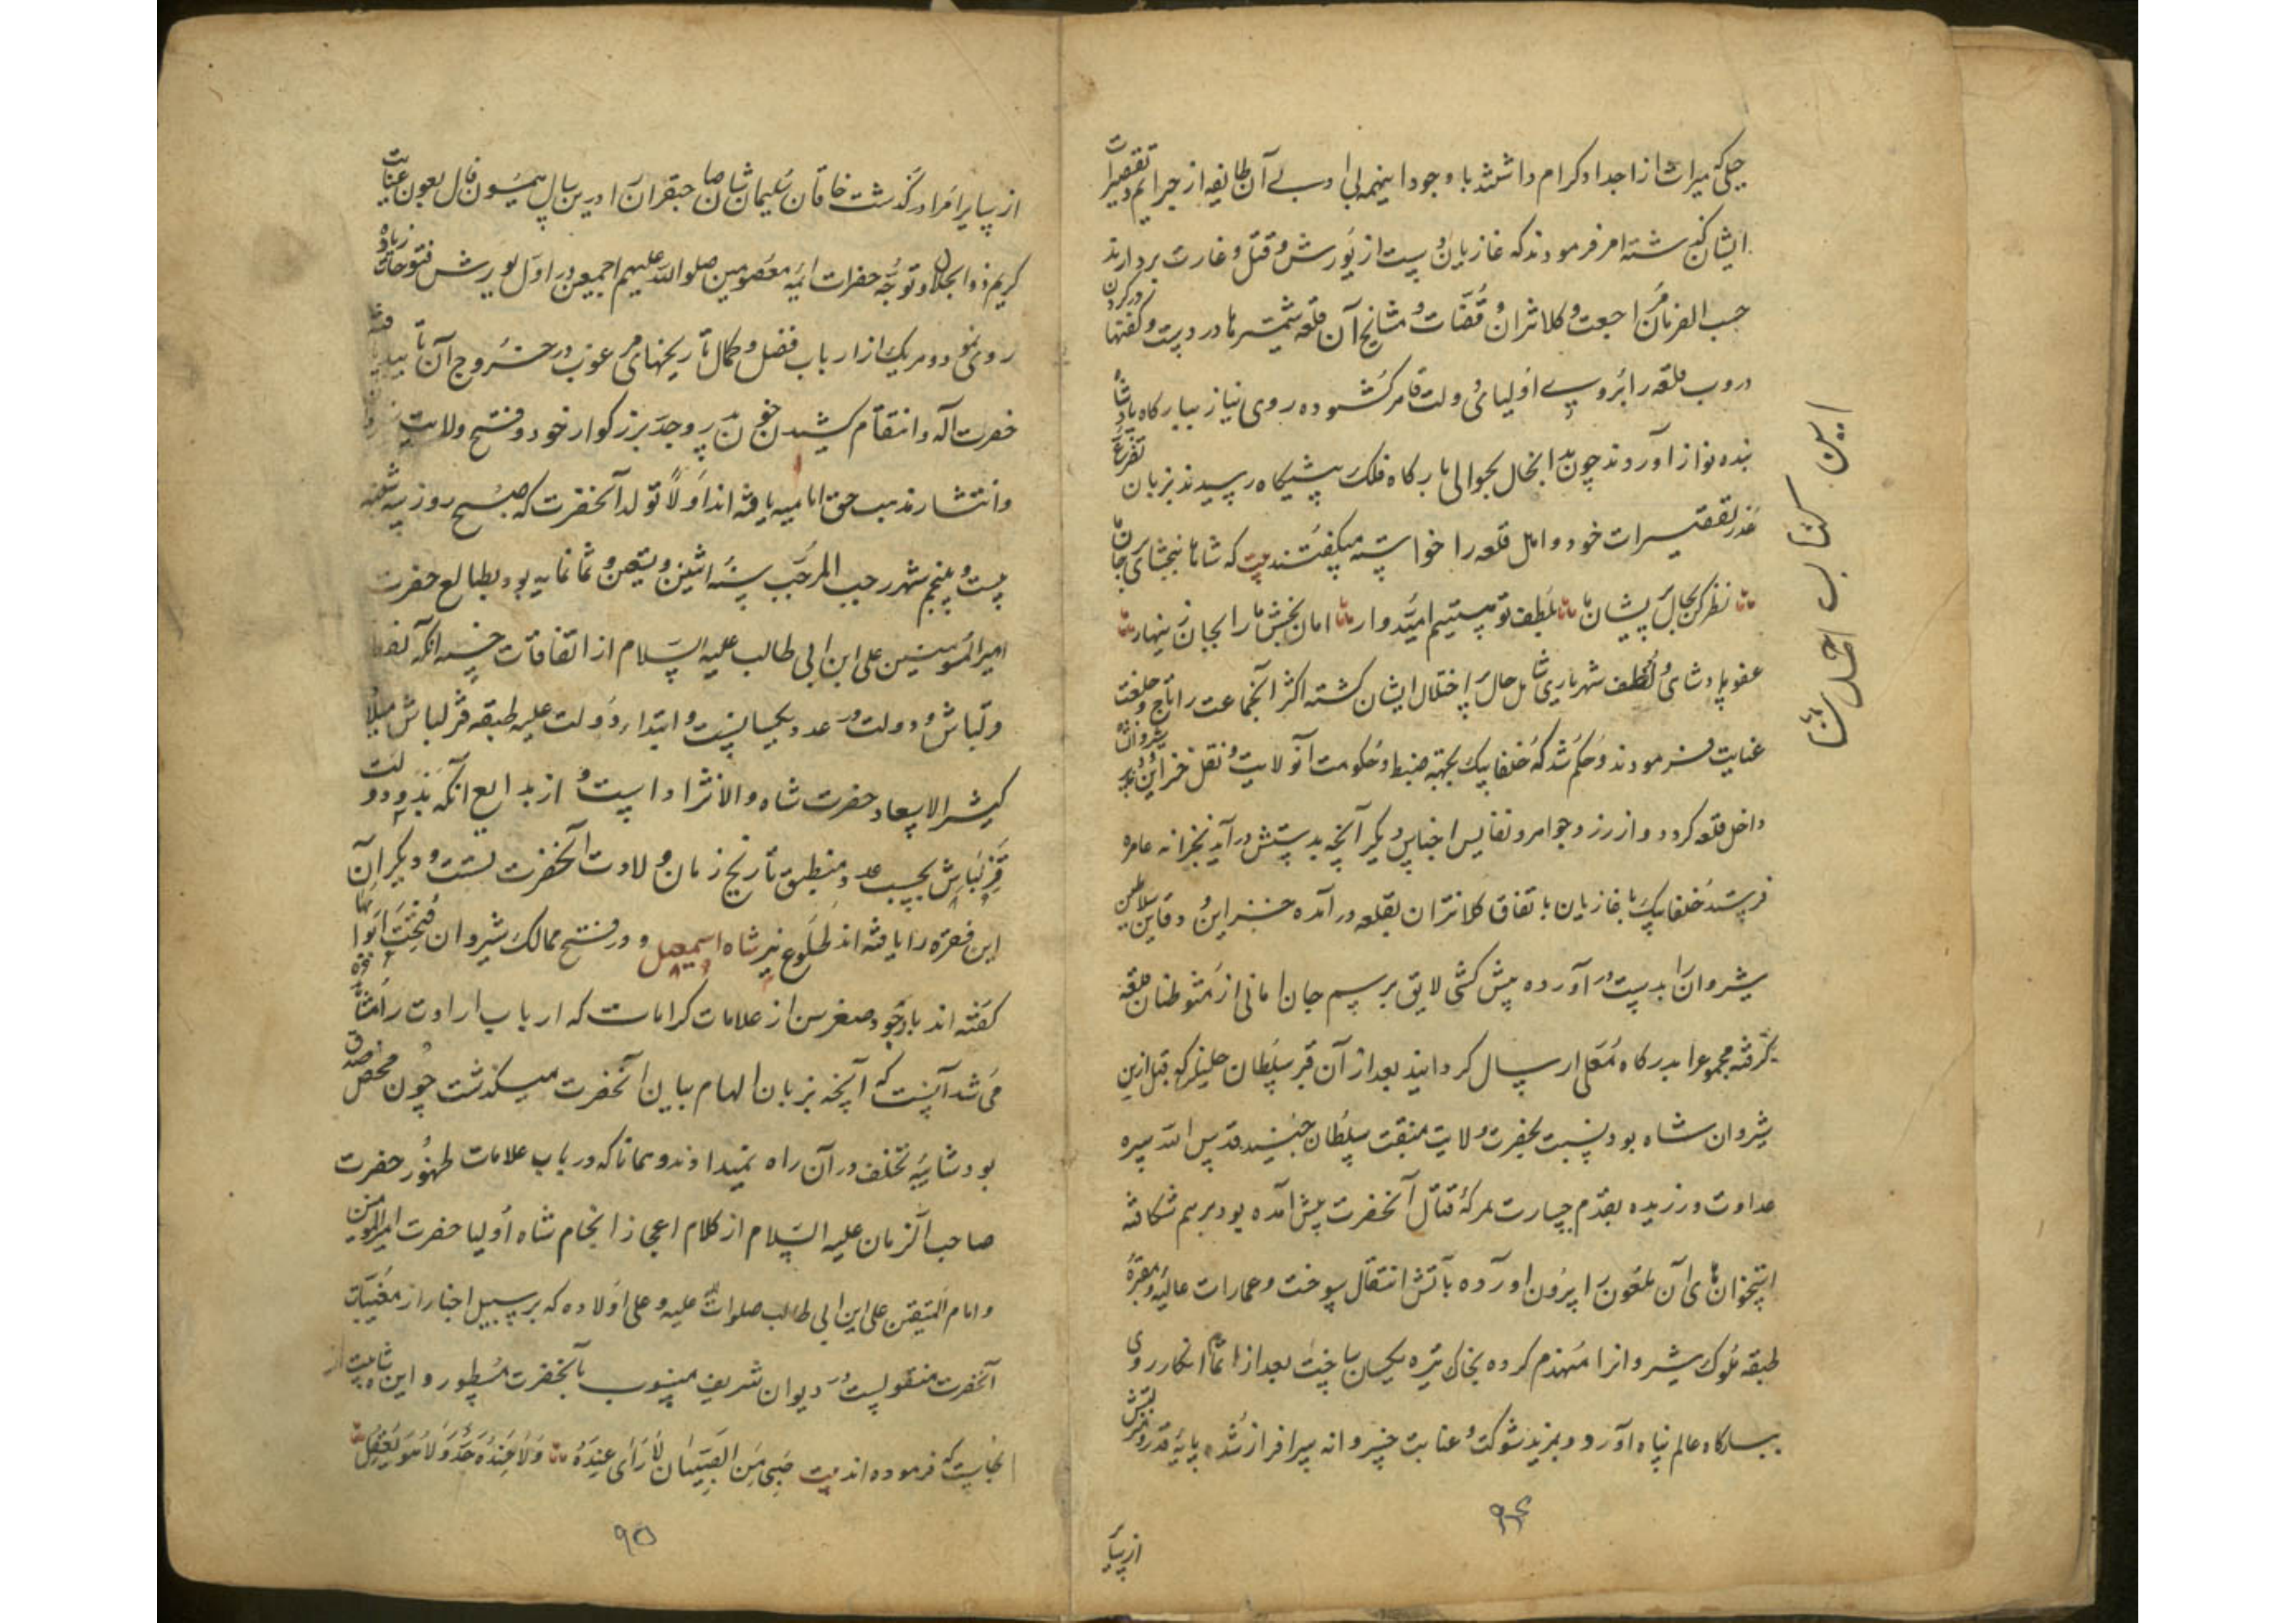 جبلی که میراث از اجداد کرام داشتند با وجود اینهمه بی ادبی آن طایفه از جرایم و تقصیرات
ایشان گذشته امر فرمودند که غازیان دست از یورش و قتل و غارت بردارند
حسب الفرمان مراجعت و کلانتران و قضات و مشایخ آن قلعه شمشیرها در دست و کفنها در گردن
دروب قلعه را بروی اولیای دولت قاهر گشوده روی نیاز ببارگاه پادشاه
بنده نواز آوردند چون بدانحال بحوالی بارگاه فلک پیشگاه رسیدند بزبان تضرع
عذر تقصیرات خود و اهل قلعه را خواسته میگفتند بیت که شاها ببخشای بر جان ما
نظر کن بحال پریشان ما بلطف تو هستیم امیدوار امان بخش ما را بجان زینهار
عفو پادشاهی و لطف شهریاری شامل حال پر اختلال ایشان گشته اکثر آنجماعت را تاج و خلعت
عنایت فرمودند و حکم شد که خلفا بیک بجهته ضبط و حکومت آنولایت و نقل خزاین شروانشاه
داخل قلعه گردد و از زر و جواهر و نفایس اجناس دیگر آنچه بدستش در آید بخزانه عامره
فرستد خلفا بیک با غازیان باتفاق کلانتران بقلعه در آمده خزاین و دفاین سلاطین
شیروان را بدست در آورده پیش کشی لایق برسم جان امانی از متوطنان قلعه
گرفته مجموع را بدرگاه معلی ارسال گردانید بعد از آن قبر سلطان خلیل که قبل ازین
شیروان شاه بود نسبت بحضرت ولایت منقبت سلطان جنید قدس الله سره
عداوت ورزیده بقدم جسارت بمعرکهٔ قتال آنحضرت پیش آمده بود برهم شکافته
استخوانهای آن ملعون را بیرون آورده بآتش انتقام سوخت و عمارات عالیه و مقبرهٔ
طبقه ملوک شیروانرا منهدم کرده بخاک تیره یکسان ساخت بعد از اتمام انکار روی
ببارگاه عالم پناه آورد و بمزید شوکت و عنایت خسروانه سرافراز شد پایهٔ قدر و منزلتش
از سایر
۹۴
این کتاب اصل شا
از سایر امرا در گذشت خاقان سلیمان شان صاحبقران را درین سال همیون فال بعون عنایت
کریم ذو الجلال و توجه حضرات ائمه معصومین صلوات الله علیهم اجمعین در اول یورش فتوحات زیاده
روی نمود و هر یک از ارباب فضل و کمال تاریخهای مرغوب در خروج آن
حضرت آله و انتقام کشیدن خون پدر و جد بزرگوار خود و فتح ولایت
و انتشار مذهب حق امامیه یافته اند اولاً تولد آنحضرت که صبح روز سه شنبه
بیست و پنجم شهر رجب المرجب سنه اثنین و تسعین و ثمانمایه بود بطالع حضرت
امیرالمؤمنین علی ابن ابی طالب علیه السلام از اتفاقات حسنه آنکه لفظ
قزلباش و دولت در عدد یکسانست و ابتداء دولت علیه طبقه قزلباش میلاد
کثیر الاسعاد حضرت شاه والانژاد است و از بدایع آنکه بدو دولت
قزلباش بحسب عدد منطبق تاریخ زمان ولادت آنحضرتست و دیگر آن
این فقره را یافته اند طلوع نیر شاه اسمعیل و در فتح ممالک شیروان فتحت ابوابها
گفته اند با وجود صغر سن از علامات کرامات که ارباب ارادت را مشاهده
می شد آنست که آنچه بزبان الهام بیان آنحضرت میگذشت چون محض صدق
بود شایبهٔ تخلف در آن راه نمیداد و همانا که در باب علامات ظهور حضرت
صاحب الزمان علیه السلام از کلام اعجاز انجام شاه اولیا حضرت امیرالمومنین
و امام المتقین علی ابن ابی طالب صلوات الله علیه و علی اولاده که بر سبیل اخبار از مغیبات
آنحضرت منقولست در دیوان شریف منسوب بآنحضرت مسطور و این شاه بیت از
آنجاست که فرموده اند بیت صبی من الصبیان لا رای عنده ولا عنده حد ولا هو یعقل
۹۵